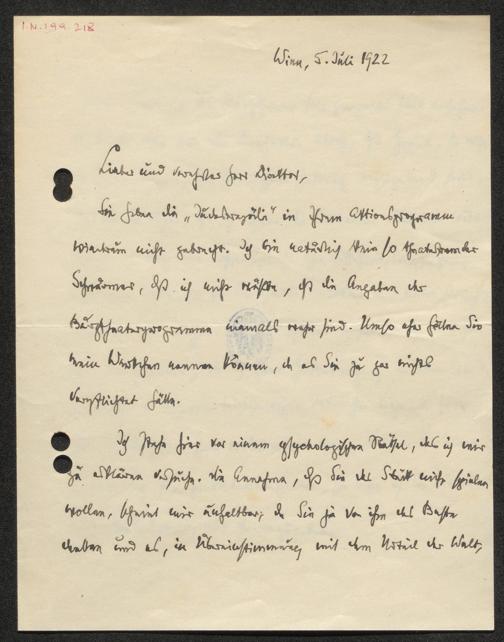 I.N. 199.218
Wien, 5. Juli 1922
Lieber und verehrter Herr Direktor,
Sie haben die „ in Ihrem Aktionsprogramm
wiederum nicht gebracht. Ich bin natürlich kein so theaterfremder
Schwärmer, daß ich nicht wüßte, daß die Angaben der
Burgtheaterprogramme niemals wahr sind. Umso eher hätten Sie
mein Werkchen nennen können, da es Sie ja zu gar nichts
verpflichtet hätte.
Ich stehe hier vor einem psychologischen Rätsel, das ich mir
zu erklären versuche. Die Annahme, daß Sie das Stück nicht spielen
wollen, scheint mir unhaltbar, da Sie ja von ihm das Beste
und es, in Übereinstimmung mit dem Urteil der Welt,